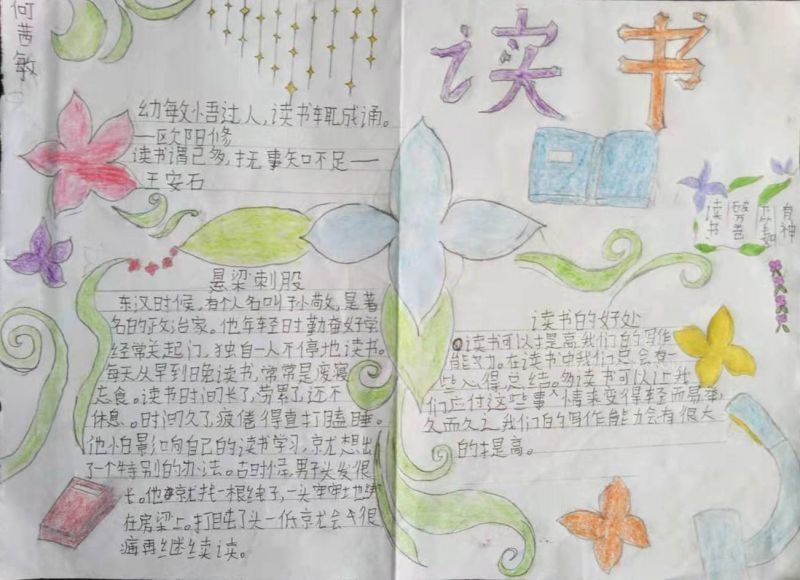 何茜敏
读书
幼敏悟过人,读书辄成诵。
—欧阳修
读书谓已多,抚事知不足——
王安石
读书
破万卷
下笔如
有神
悬梁刺股
东汉时候,有个人名叫孙敬,是著
名的政治家。他年轻时勤奋好学
经常关起门,独自一人不停地读书。
每天从早到晚读书,常常是废寝
忘食。读书时间长了,劳累了,还不
休息。时间久了,疲倦得直打瞌睡。
他怕影响自己的读书学习,就想出
了一个特别的办法。古时候,男子头发很
长。他就找一根绳子,一头牢牢地绑
在房梁上。打盹了头一低就会
很
痛再继续读。
读书的好处
读书可以提高我们的写作
能力。在读书中我们总会有一
些心得总结。多读书可以让我
们应付这些事人情来变得轻而易举,
久而久之,我们的写作能力会有很大
的提高。